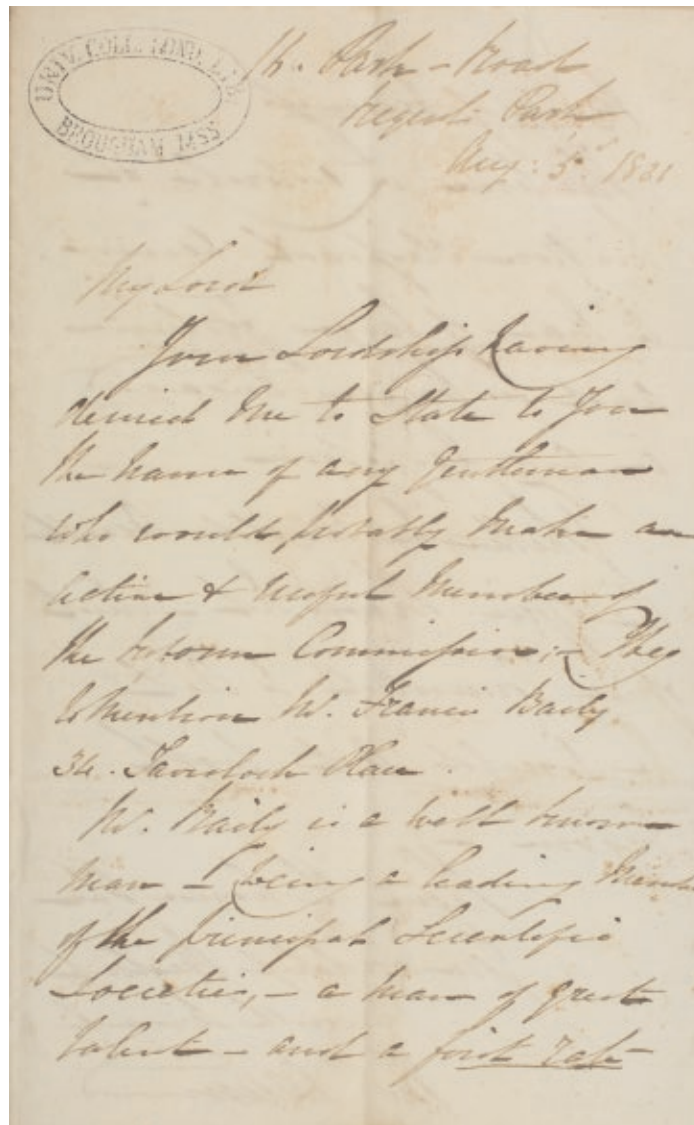 UNIV. COLL. LOND. LIB.
BROUGHAM MSS
16. Park - Road
Regents Park
Aug: 5. 1831
My Lord
Your Lordship having
desired me to State to You
the name of any Gentleman
who would probably make an
active & useful Member of
the Commission; - I beg
to mention Mr. Francis Baily
34. Tavistock Place.
Mr. Baily is a well known
man - being a leading Member
of the principal Scientific
Societies, - a man of great
talent - and a first rate